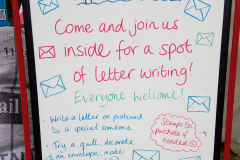 Come and join us
inside for a spot
of letter writing!
Everyone Welcome!
• Write a letter or postcard
to a special someone
• Try a quill, decorate
an envelope, make
Stamps to
purchase if
needed